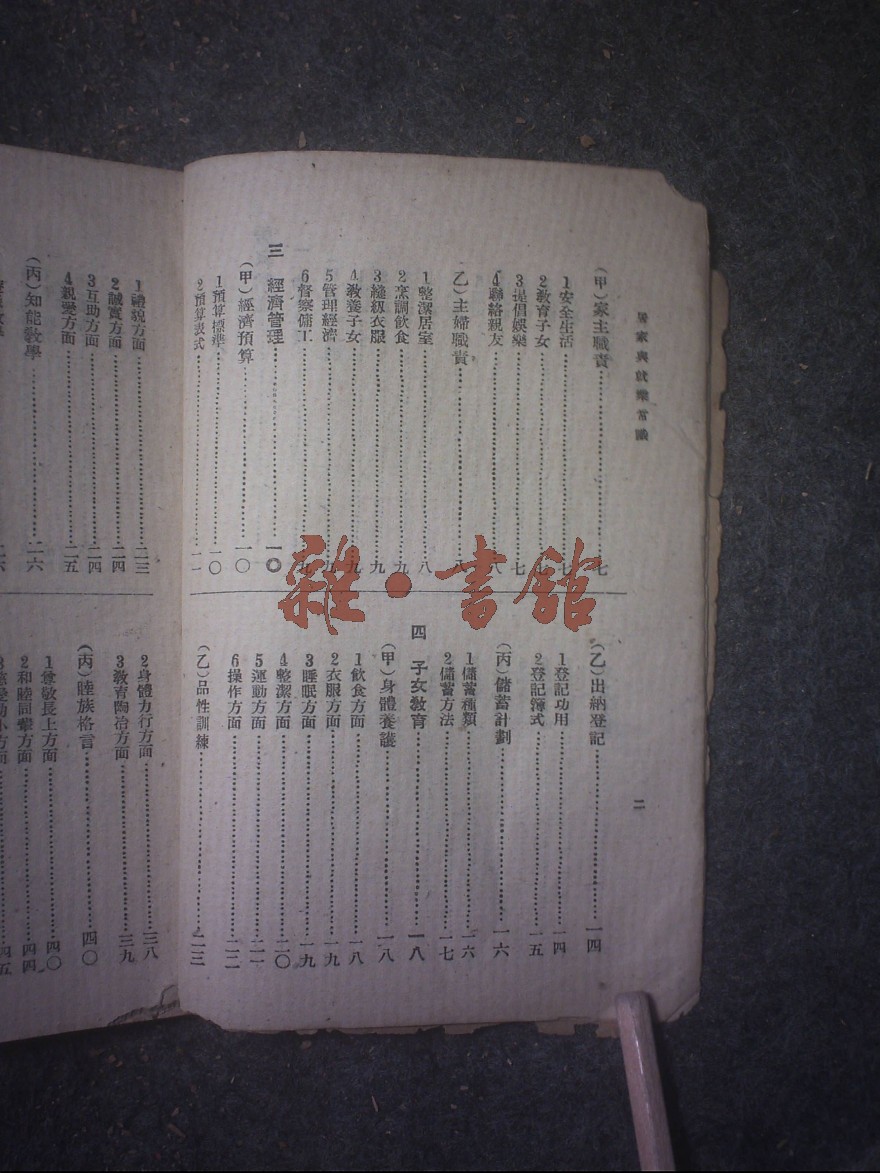 居家與就業常識
二
（甲）家主職責……七
1安全生活……七
2教育子女……七
3提倡娛樂……七
4聯絡親友……八
（乙）主婦職責……八
1整潔居室……八
2烹調飲食……九
3縫紉衣服……九
4教養子女……九
5管理經濟……九
6督察傭工……九
三 經濟管理……一〇
（甲）經濟預算……一〇
1預算標準……一〇
2預算表式……一一
（乙）出納登記……一四
1登記功用……一四
2登記簿式……一五
（丙）儲蓄計劃……一六
1儲蓄種類……一六
2儲蓄方法……一七
四 子女教育……一八
（甲）身體養護……一八
1飲食方面……一八
2衣服方面……一九
3睡眠方面……一九
4整潔方面……二〇
5運動方面……二一
6操作方面……二二
（乙）品性訓練……二三
1禮貌方面……二三
2誠實方面……二四
3互助方面……二四
4親愛方面……二五
（丙）知能教學……二六
2身體力行方面……三八
3教育陶冶方面……三九
（丙）睦族格言……四〇
1尊敬長上方面……四〇
2和睦同輩方面……四四
雜·書館